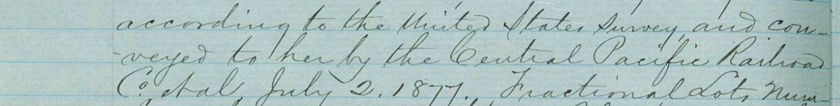 according to the United States survey, and con-
-veyed to her by the Central Pacific Railroad
Co. et al, July 2. 1877. Fractional Lots Num-